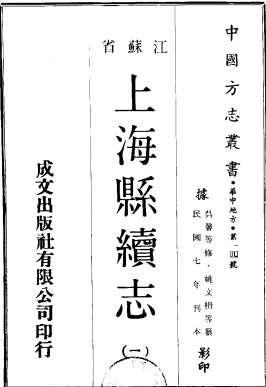 中國方志叢書・華中地方・第一四號
據 吳馨等修・姚文枬等纂 民國七年刊本 影印
江蘇省
上海縣續志
(一)
成文出版社有限公司印行